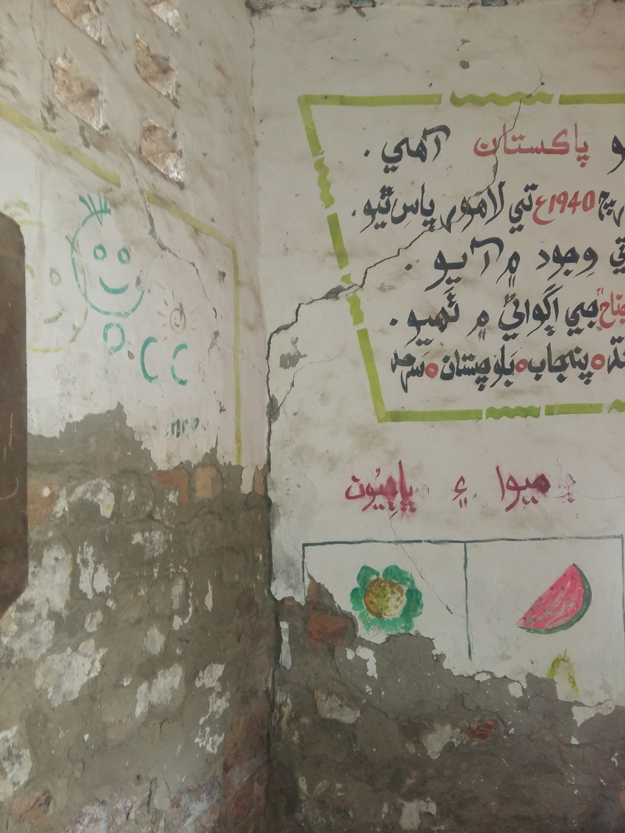 پاڪستان آهي.
1940ع تي لاهور ۾ پاس ٿيو.
وجود ۾ آيو.
جناح جي اڳواڻي ۾ ٺهيو.
پنجاب ٥ بلوچستان ٥ سرحد
ميوا ۽ ڀاڄيون